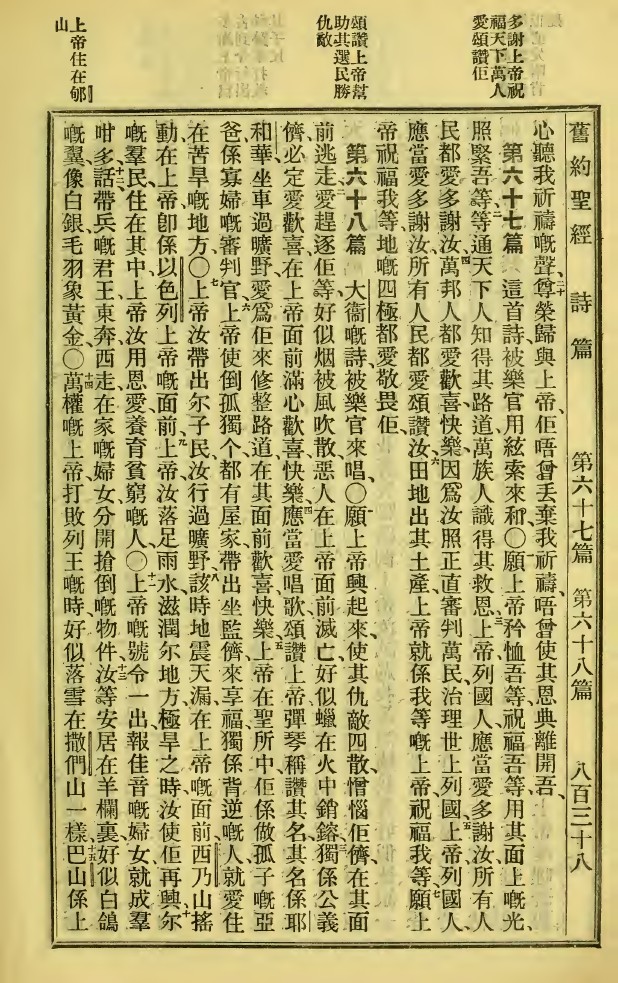 多謝上帝祝
福天下萬人
愛頌讚佢
頌讚上帝幫
助其選民勝
仇敵
上帝住在郇
山
舊約聖經 詩篇 第六十七篇 第六十八篇 八百三十八
心聽我祈禱嘅聲、二十尊榮歸與上帝、佢唔曾丟棄我祈禱、唔曾使其恩典離開吾、
第六十七篇 這首詩被樂官用絃索來和、〇一願上帝矜恤吾等、祝福吾等、用其面上嘅光、
照緊吾等、二等通天下人知得其路道、萬族人識得其救恩、三上帝列國人應當愛多謝汝、所有人
民都愛多謝汝、四萬邦人都愛歡喜快樂、因爲汝照正直審判萬民、治理世上列國、五上帝列國人、
應當愛多謝汝、所有人民都愛頌讚汝、六田地出其土產、上帝就係我等嘅上帝、祝福我等、七願上
帝祝福我等、地嘅四極都愛敬畏佢、
第六十八篇 大衞嘅詩、被樂官來唱、〇一願上帝興起來、使其仇敵四散、憎惱佢儕、在其面
前逃走、二愛趕逐佢等、好似烟被風吹散、惡人在上帝面前滅亡、好似蠟在火中銷鎔、三獨係公義
儕必定愛歡喜、在上帝面前滿心歡喜快樂、四應當愛唱歌頌讚上帝、彈琴稱讚其名、其名係耶
和華、坐車過曠野、愛爲佢來修整路道、在其面前歡喜快樂、五上帝在聖所中、佢係做孤子嘅亞
爸、係寡婦嘅審判官、六上帝使倒孤獨个都有屋家、帶出坐監儕來享福、獨係背逆嘅人、就愛住
在苦旱嘅地方、〇七上帝汝帶出尔子民、汝行過曠野、八該時地震天漏、在上帝嘅面前、西乃山搖
動、在上帝卽係以色列上帝嘅面前、九上帝汝落足雨水、滋潤尔地方、極旱之時、汝使佢再興、十尔
嘅羣民住在其中、上帝汝用恩愛養育貧窮嘅人、〇十一上帝嘅號令一出、報佳音嘅婦女就成羣
咁多、十二話帶兵嘅君王、東奔西走、在家嘅婦女、分開搶倒嘅物件、十三汝等安居在羊欄裏、好似白鴿
嘅翼、像白銀、毛羽象黃金、〇十四萬權嘅上帝、打敗列王嘅時、好似落雪在撒們山一樣、十五巴山係上